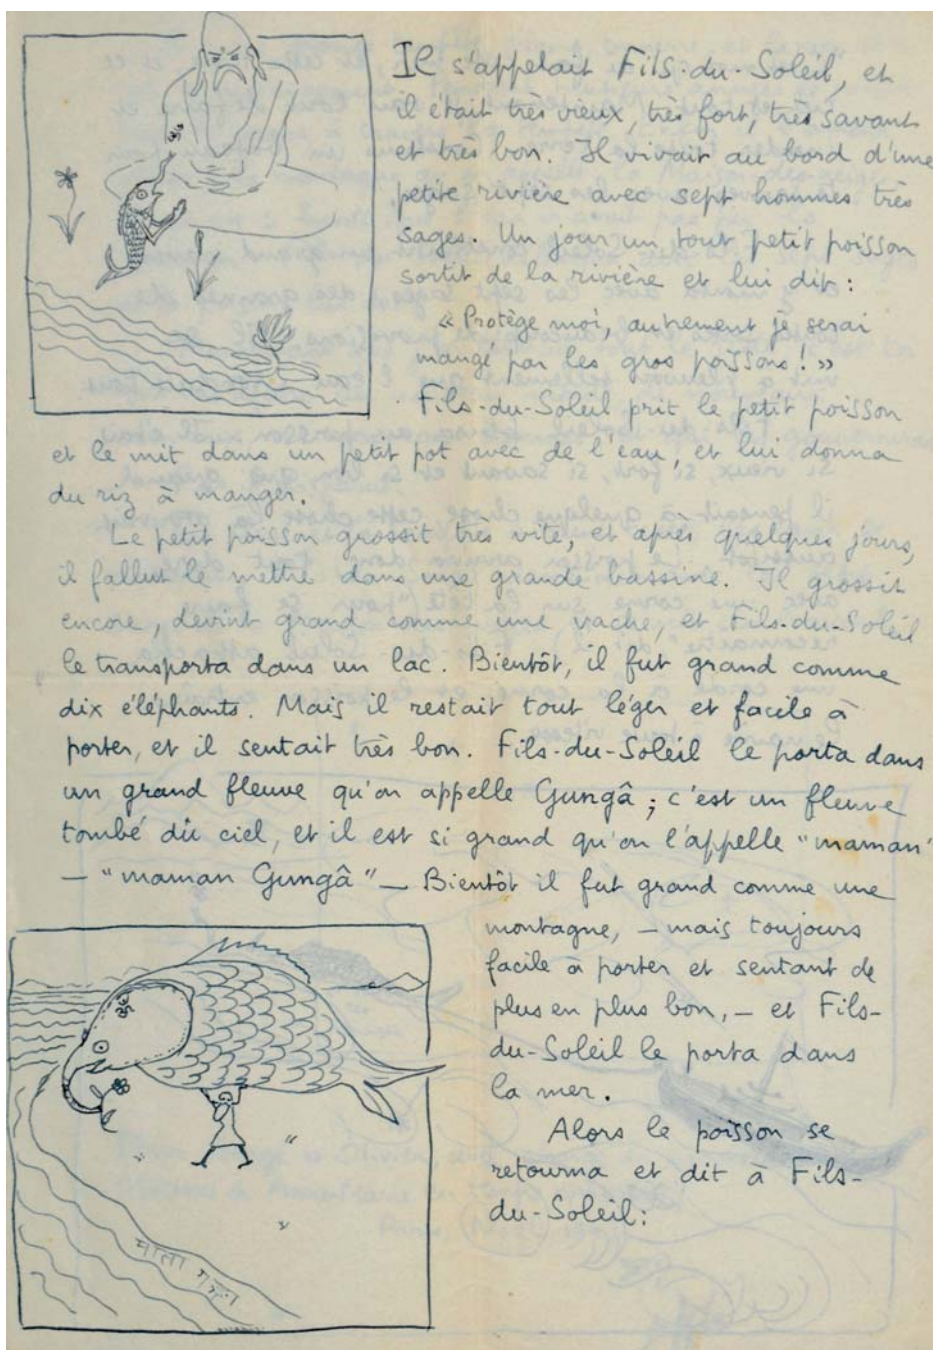 Il s'appelait Fils-du-Soleil, et
il était très vieux, très fort, très savant
et très bon. Il vivait au bord d'une
petite rivière avec sept hommes très
sages. Un jour un tout petit poisson
sortit de la rivière et lui dit :
« Protège moi, autrement je serai
mangé par les gros poissons ! »
Fils-du-Soleil prit le petit poisson
et le mit dans un petit pot avec de l'eau, et lui donna
du riz à manger.
Le petit poisson grossit très vite, et après quelques jours,
il fallut le mettre dans une grande bassine. Il grossit
encore, devint grand comme une vache, et Fils-du-Soleil
le transporta dans un lac. Bientôt, il fut grand comme
dix éléphants. Mais il restait tout léger et facile à
porter, et il sentait très bon. Fils-du-Soleil le porta dans
un grand fleuve qu'on appelle Gungâ ; c'est un fleuve
tombé du ciel, et il est si grand qu'on l'appelle "maman"
— "maman Gungâ" — Bientôt il fut grand comme une
montagne, — mais toujours
facile à porter et sentant de
plus en plus bon, — et Fils-
du-Soleil le porta dans
la mer.
Alors le poisson se
retourna et dit à Fils-
du-Soleil :
ॐ
ॐ
माता गङ्गा